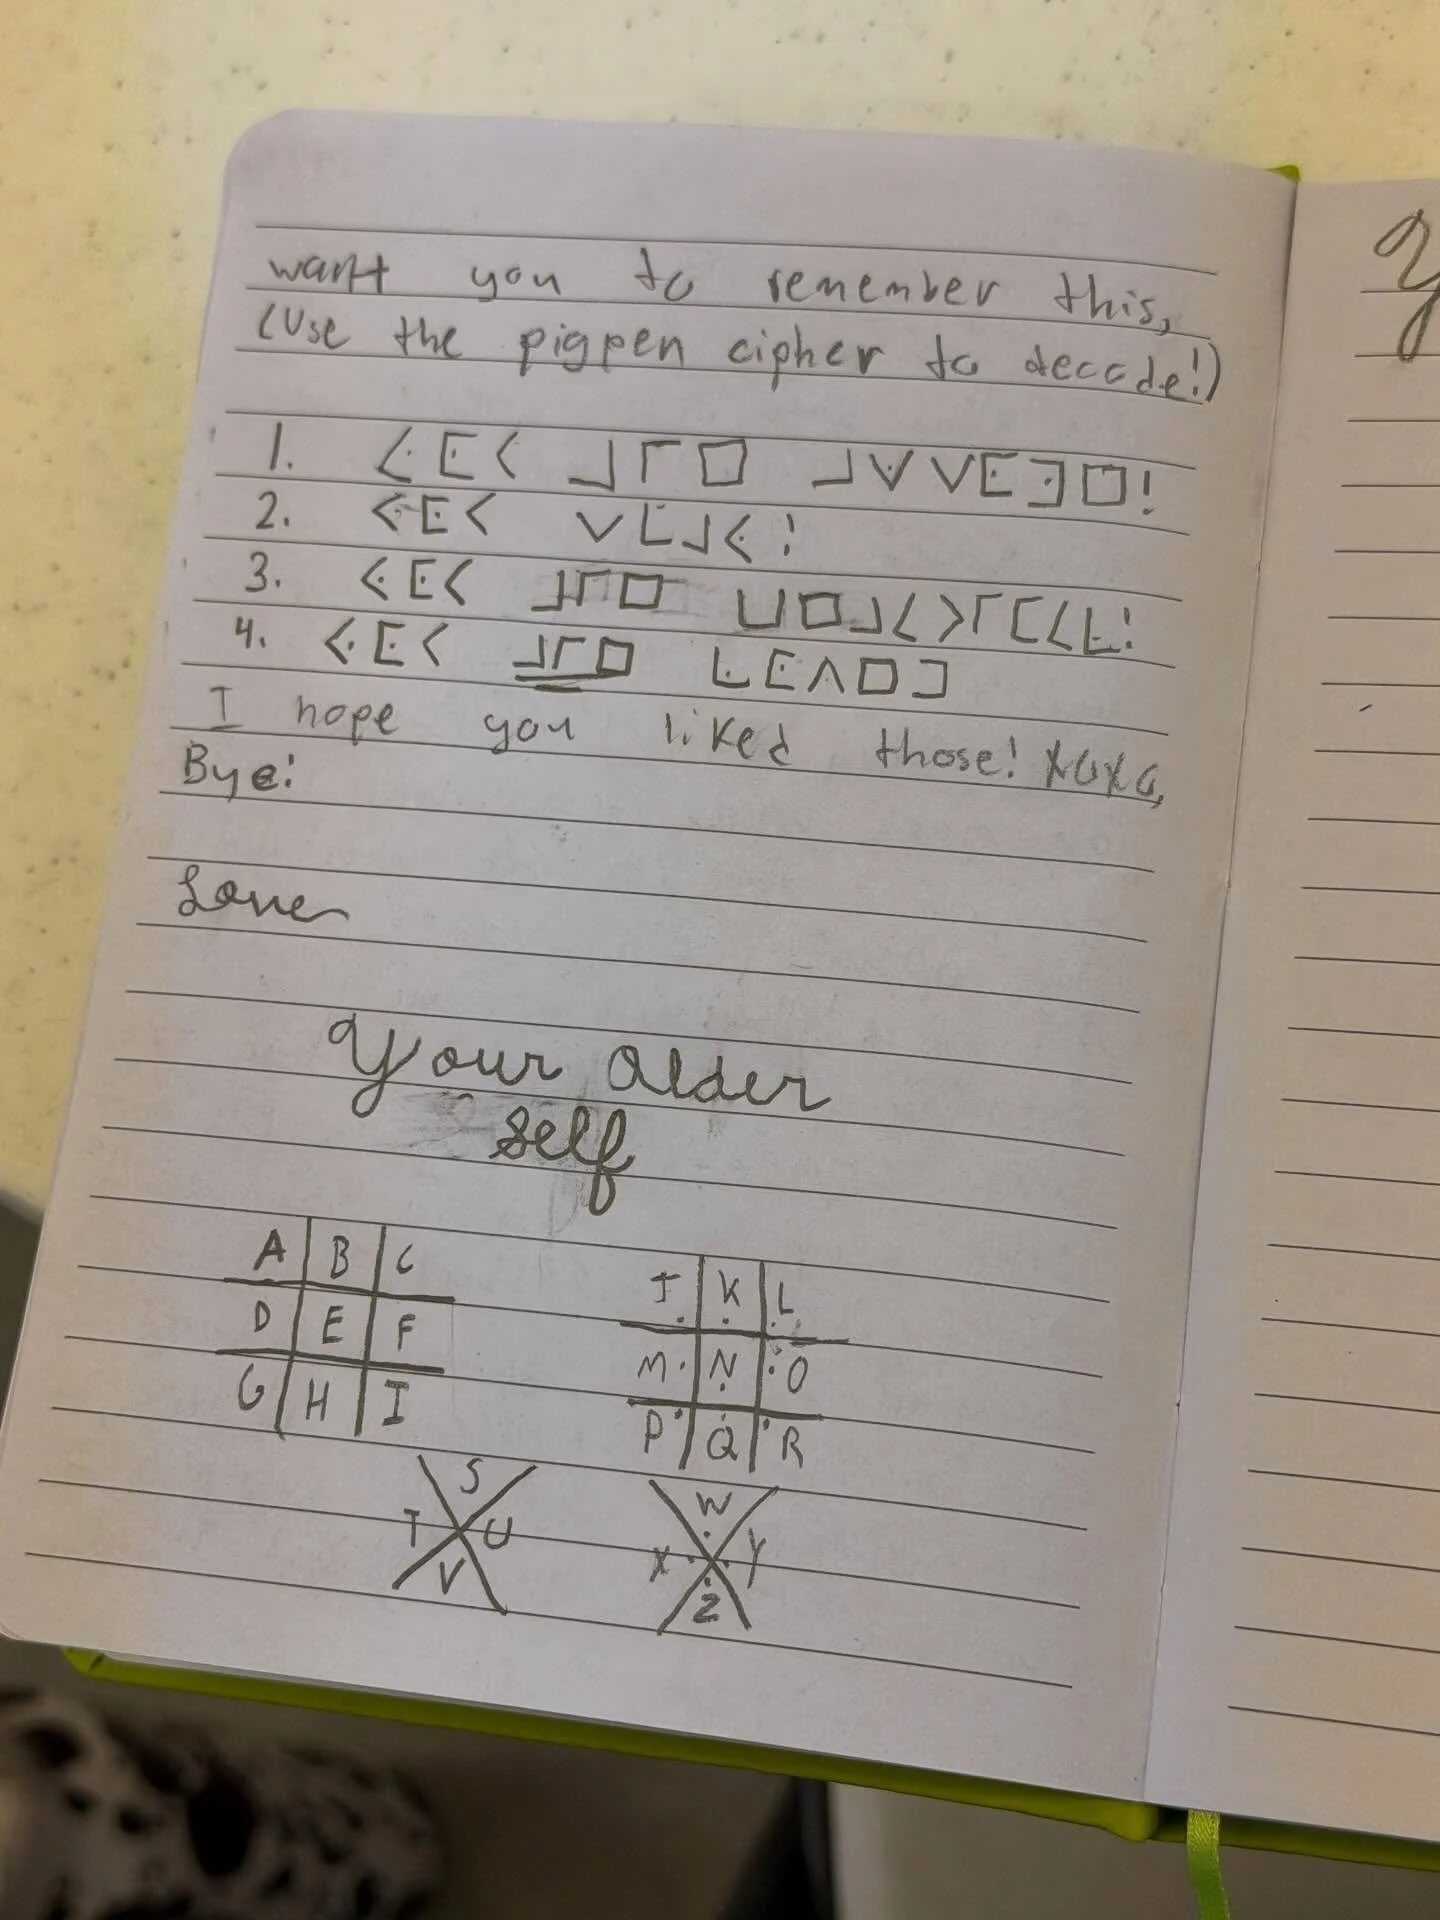 want you to remember this,
(Use the pigpen cipher to decode!)
1.
2.
3.
4.
I hope you liked those! XOXO,
Bye!
Love
Your Older
self
A B C
D E F
G H I
J K L
M N O
P Q R
S
T U
V
W
X Y
Z